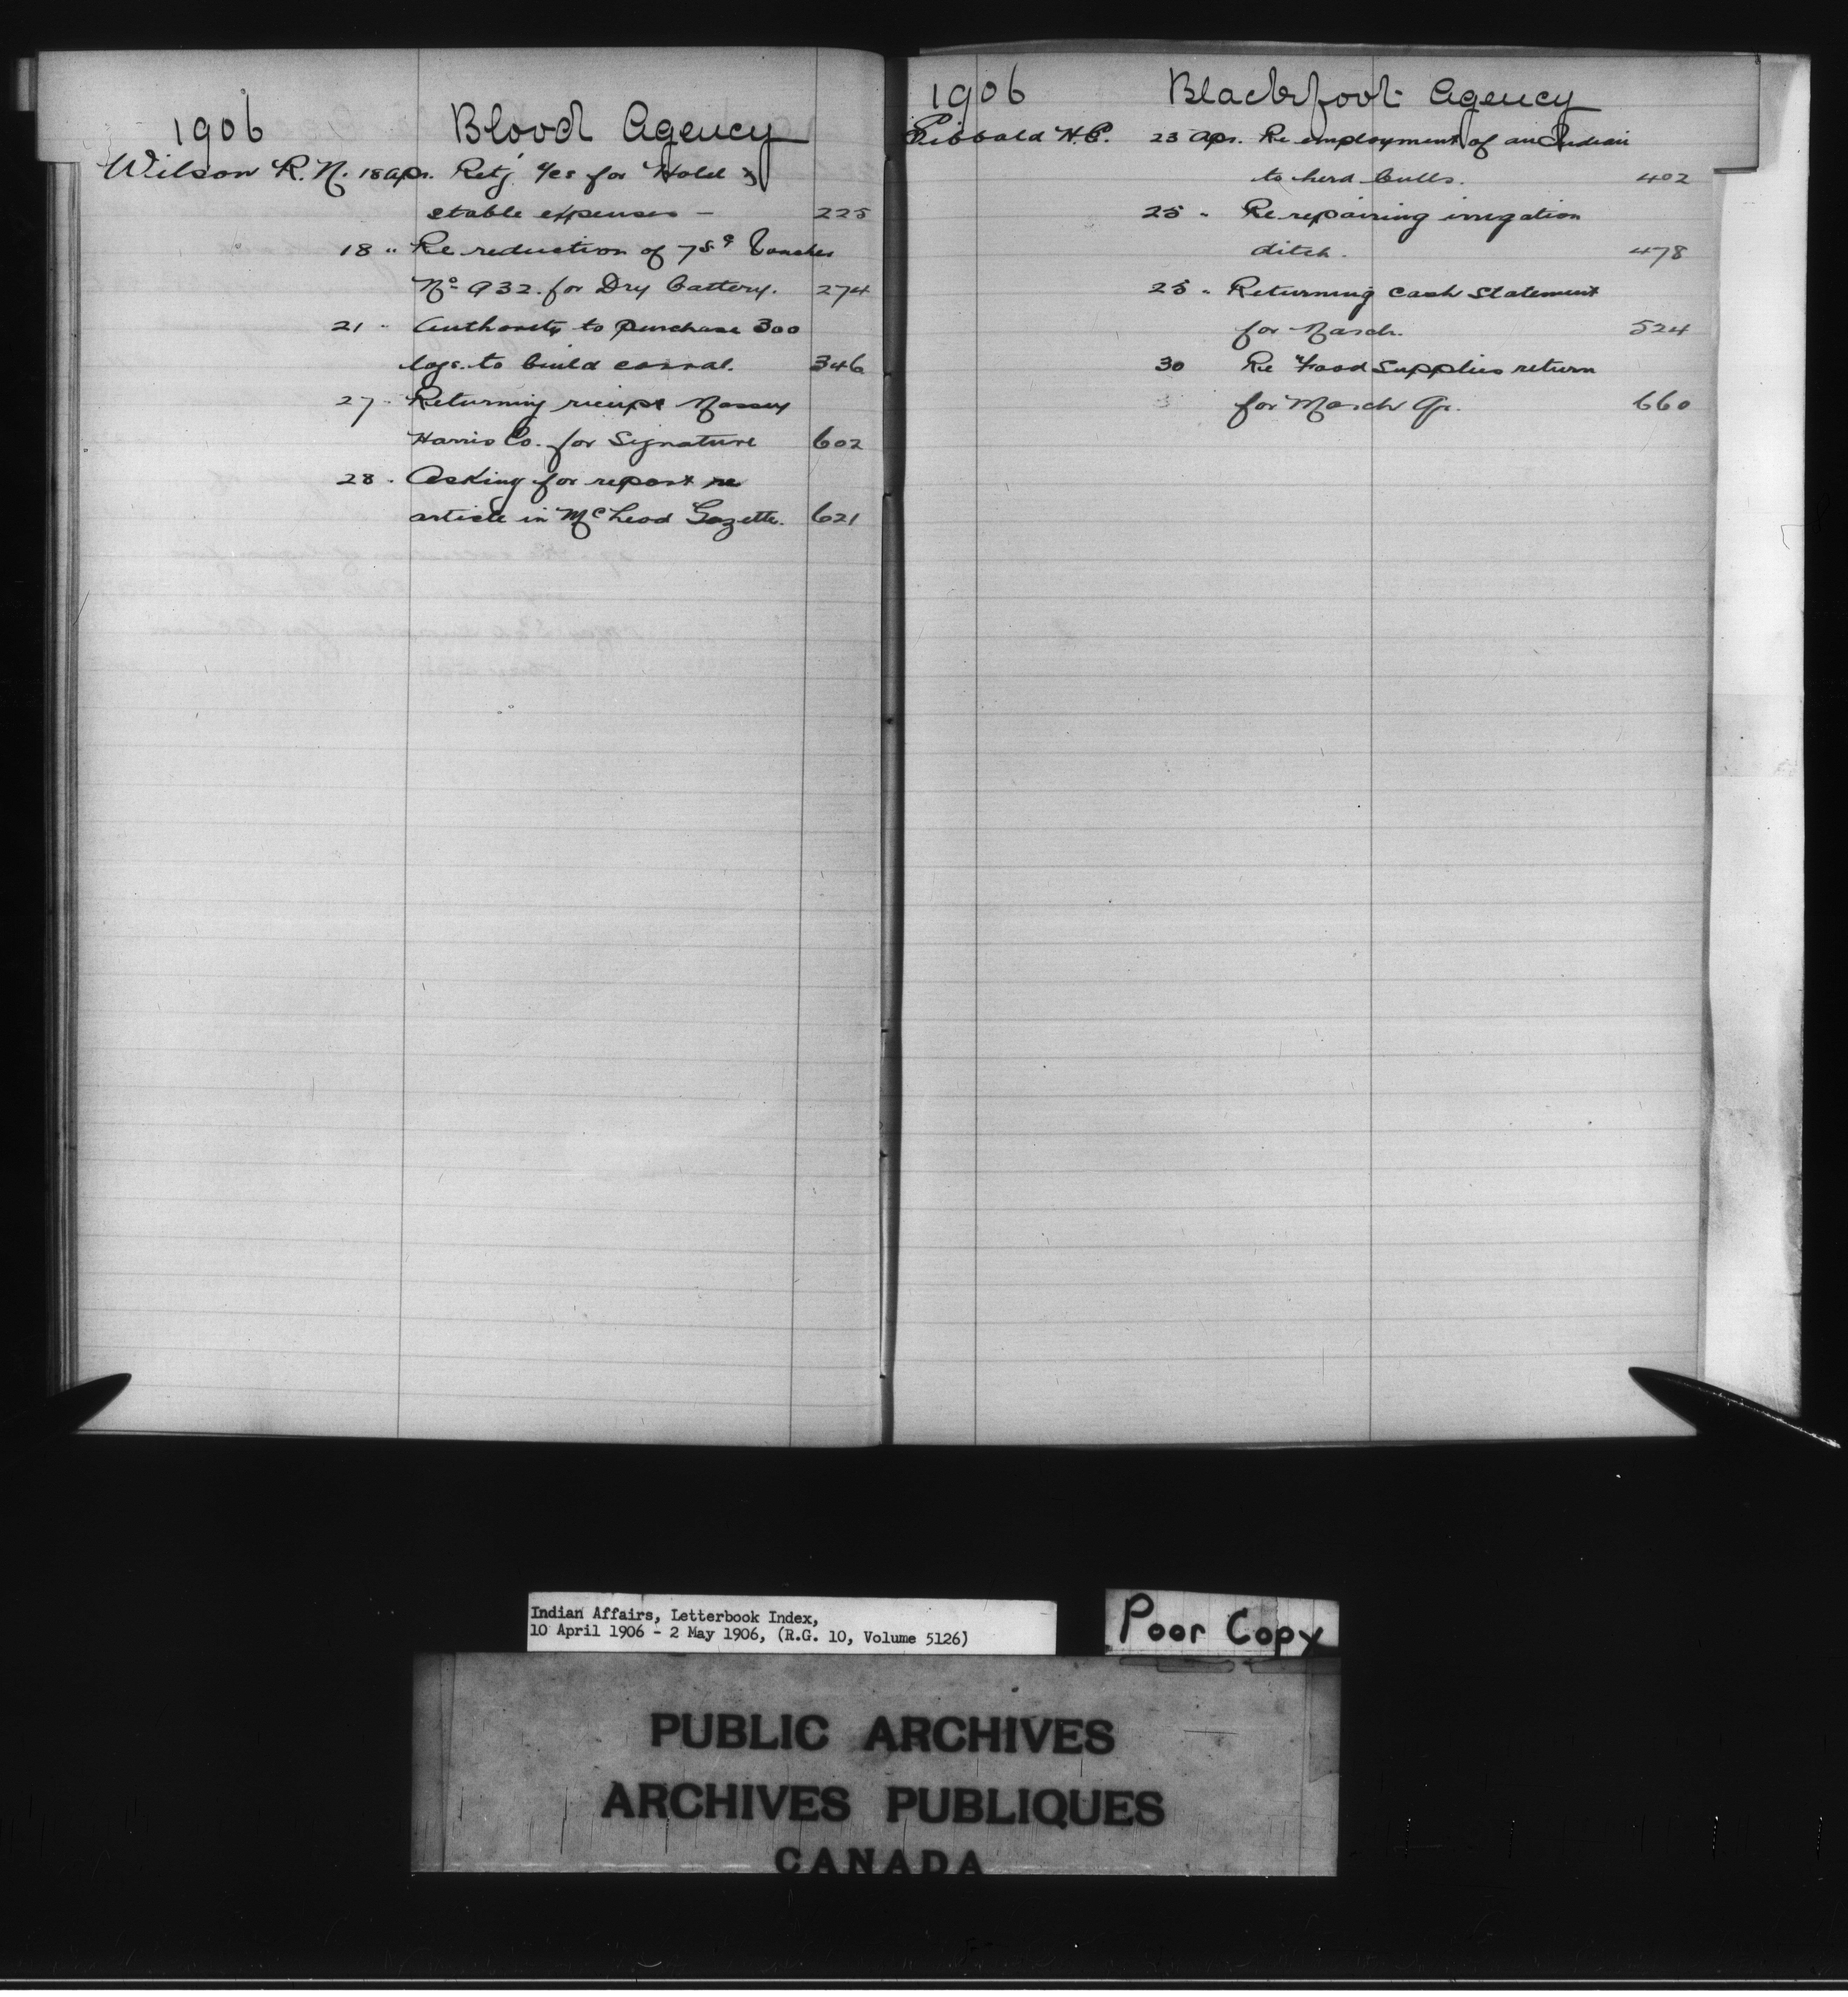 1906 Blood Agency
Wilson R. N. 18 Apr. Retg a/cs for Hotel &
stable expenses — 225
18 " Re reduction of 75¢ Voucher
No 932. for Dry battery. 274
21 " Authority to purchase 300
logs. to build corral. 346
27 " Returning receipt Massey
Harris Co. for Signature 602
28 " Asking for report re
article in McLeod Gazette. 621
1906 Blackfoot Agency
Sibbald H. E. 23 Apr. Re employment of an Indian
to herd bulls. 402
25 " Re repairing irrigation
ditch. 478
25 " Returning Cash Statement
for March. 524
30 Re Food Supplies return
for March Qr. 660
Indian Affairs, Letterbook Index,
10 April 1906 - 2 May 1906, (R.G. 10, Volume 5126)
Poor Copy
PUBLIC ARCHIVES
ARCHIVES PUBLIQUES
CANADA